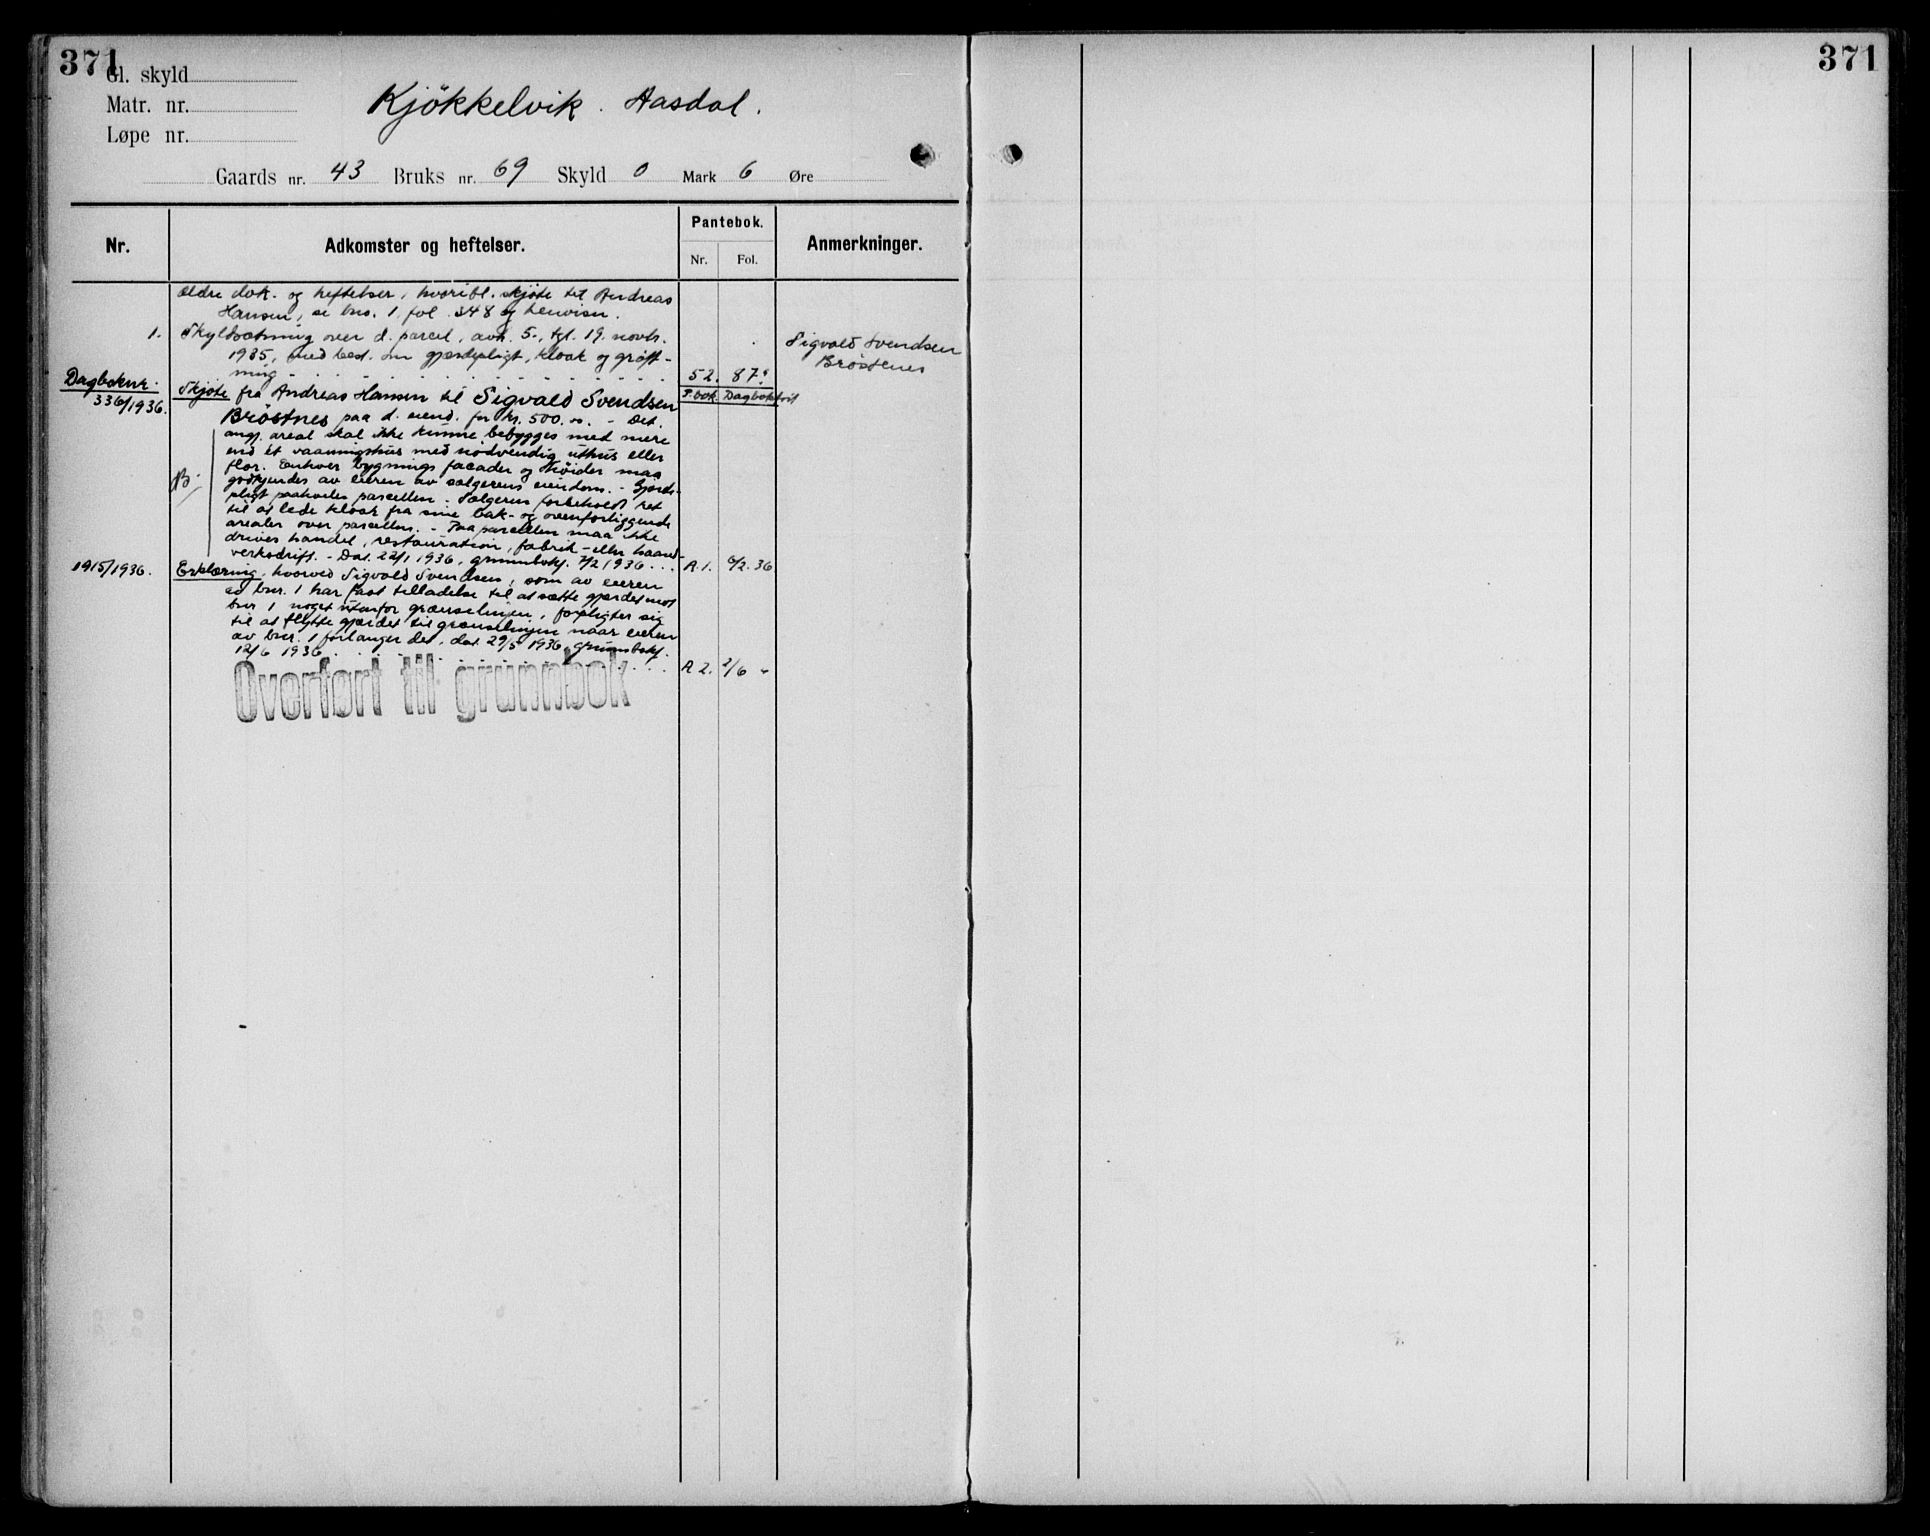 371
371
Gl. skyld
Matr. nr.
Løpe nr.
Kjøkkelvik. Aasdal.
Gaards nr. 43 Bruks nr. 69 Skyld 0 Mark 6 Øre
Nr. Adkomster og heftelser. Pantebok. Anmerkninger.
Nr. Fol.
Ældre dok. og heftelser, hvoribl. skjøte til Andreas
Hansen, se bnr. 1. fol. 348 og henvisn.
1. Skyldsætning over d. parcel, avh. 5., tgl. 19. novbr.
1935, med best. om gjerdepligt, kloak og grøft-
ning 52. 87.
Sigvald Svendsen
Brøstnes
Dagboknr. P.bok. Dagboktrit
336/1936. Skjøte fra Andreas Hansen til Sigvald Svendsen
Brøstnes paa d. eiend. for kr. 500.00. - Det
angj. areal skal ikke kunne bebygges med mere
end ét vaaningshus med nødvendig uthus eller
flor. Enhver bygnings facader og høider maa
godkjendes av eieren av sælgerens eiendom. - Gjærde-
pligt paahviler parcellen. Sælgeren forbeholdt ret
til at lede kloak fra sine bak- og ovenforliggende
arealer over parcellen. - Paa parcellen maa ikke
drives handel, restauration, fabrik- eller haand-
verksdrift. - Dat. 22/1 1936, grunnboksf. 7/2 1936 ... A.1. 6/2. 36
1915/1936. Erklæring, hvorved Sigvald Svendsen, som av eieren
av bnr. 1 har faat tilladelse til at sætte gjærdet mot
bnr 1 noget utenfor grænselinjen, forpligter sig
til at flytte gjærdet til grænselinjen naar eieren
av bnr. 1 forlanger det, dat. 29/5 1936, grunnboksf.
12/6 1936 A 2. 2/6 "
Overført til grunnbok